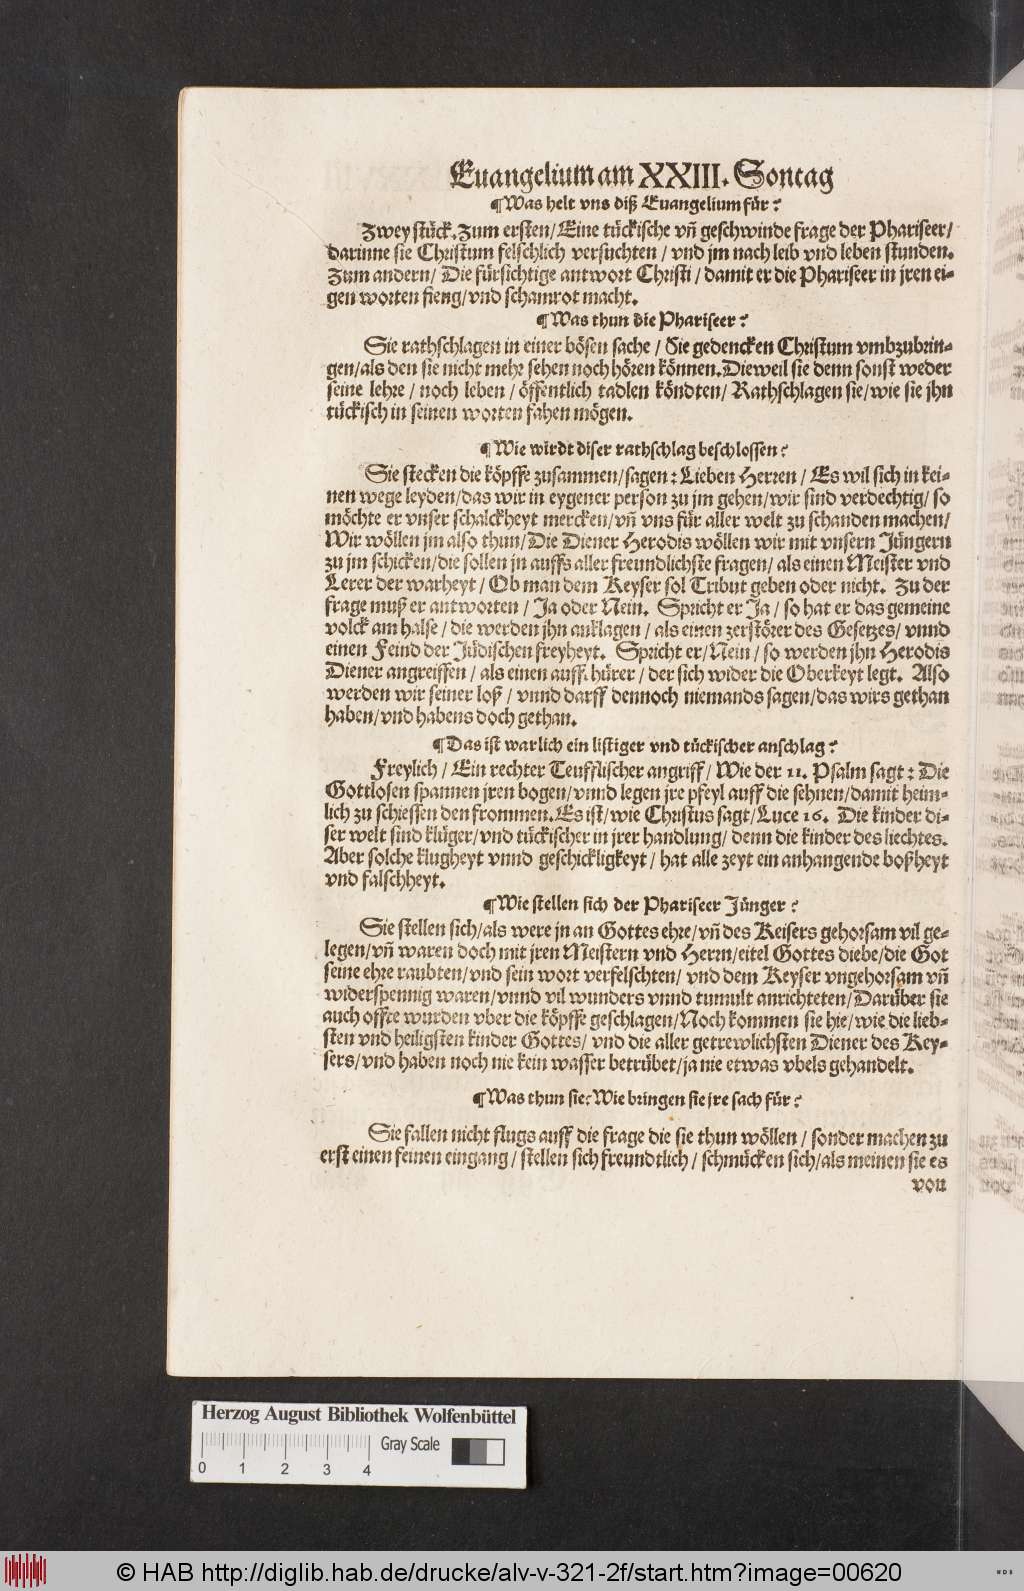 Euangelium am XXIII. Sontag
¶ Was helt vns diß Euangelium für?
Zwey stück. Zum ersten/ Eine tückische vñ geschwinde frage der Phariseer/
darinne sie Christum felschlich versuchten / vnd jm nach leib vnd leben stunden.
Zum andern/ Die fürsichtige antwort Christi / damit er die Phariseer in jren ei-
gen worten fieng/ vnd schamrot macht.
¶ Was thun die Phariseer?
Sie rathschlagen in einer bösen sache / Sie gedencken Christum vmbzubrin-
gen/ als den sie nicht mehr sehen noch hören können. Dieweil sie denn sonst weder
seine lehre / noch leben / öffentlich tadlen köndten/ Rathschlagen sie/ wie sie jhn
tückisch in seinen worten fahen mögen.
¶ Wie wirdt diser rathschlag beschlossen?
Sie stecken die köpffe zusammen/ sagen: Lieben Herren / Es wil sich in kei-
nen wege leyden/ das wir in eygener person zu jm gehen/ wir sind verdechtig/ so
möchte er vnser schalckheyt mercken/ vñ vns für aller welt zu schanden machen/
Wir wöllen jm also thun/ Die Diener Herodis wöllen wir mit vnsern Jüngern
zu jm schicken/ die sollen jn auffs aller freundlichste fragen/ als einen Meister vnd
Lerer der warheyt / Ob man dem Keyser sol Tribut geben oder nicht. Zu der
frage muß er antworten / Ja oder Nein. Spricht er Ja / so hat er das gemeine
volck am halse / die werden jhn anklagen / als einen zerstörer des Gesetzes/ vnnd
einen Feind der Jüdischen freyheyt. Spricht er/ Nein / so werden jhn Herodis
Diener angreiffen / als einen auff hürer / der sich wider die Oberkeyt legt. Also
werden wir seiner loß / vnnd darff dennoch niemands sagen/ das wirs gethan
haben/ vnd habens doch gethan.
¶ Das ist warlich ein listiger vnd tückischer anschlag?
Freylich / Ein rechter Teufflischer angriff / Wie der 11. Psalm sagt: Die
Gottlosen spannen jren bogen/ vnnd legen jre pfeyl auff die sehnen/ damit heim-
lich zu schiessen den frommen. Es ist/ wie Christus sagt/ Luce 16. Die kinder di-
ser welt sind klüger/ vnd tückischer in jrer handlung/ denn die kinder des liechtes.
Aber solche klugheyt vnnd geschickligkeyt / hat alle zeyt ein anhangende boßheyt
vnd falschheyt.
¶ Wie stellen sich der Phariseer Jünger?
Sie stellen sich/ als were jn an Gottes ehre/ vñ des Keisers gehorsam vil ge-
legen/ vñ waren doch mit jren Meistern vnd Herrn/ eitel Gottes diebe/ die Got
seine ehre raubten/ vnd sein wort verfelschten/ vnd dem Keyser vngehorsam vñ
widerspennig waren/ vnnd vil wunders vnnd tumult anrichteten/ Darüber sie
auch offte wurden vber die köpffe geschlagen/ Noch kommen sie hie/ wie die lieb-
sten vnd heiligsten kinder Gottes/ vnd die aller getrewlichsten Diener des Key-
sers/ vnd haben noch nie kein wasser betrübet/ ja nie etwas vbels gehandelt.
¶ Was thun sie? Wie bringen sie jre sach für?
Sie fallen nicht flugs auff die frage die sie thun wöllen / sonder machen zu
erst einen feinen eingang / stellen sich freundtlich / schmücken sich/ als meinen sie es
von
Herzog August Bibliothek Wolfenbüttel
Gray Scale
0 1 2 3 4
© HAB http://diglib.hab.de/drucke/alv-v-321-2f/start.htm?image=00620